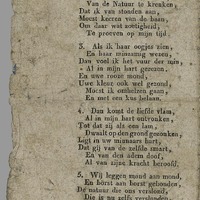 Van de Natuur te krenken,
Dat ik van stonden aan,
Moest keeren van de baan,
Om daar wat zoetigheid,
Te proeven op mijn tijd
3. Als ik haar oogjes zien,
En haar minzamig wezen,
Dan voel ik het vuur der min,
Al in mijn hart gerezen,
En uwe rooze mond,
Uwe kleur ook wel gezond,
Moest ik omhelzen gaan,
En met een kus belaan.
4. Dan komt de liefde vlam,
Al in mijn hart ontvonken,
Tot dat zij als een lam,
Dwaalt op den grond gezonken,
Ligt in uw minnaars hart,
Dat gij van de zelfde smart,
En van den adem doof,
Al van zijne kracht beroofd.
5. Wij leggen mond aan mond,
En borst aan borst gebonden,
De natuur die ons verslond,
Die is nu zelfs verslonden,